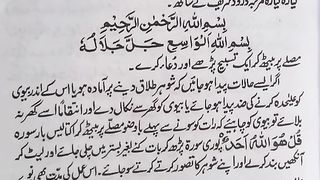 گیارہ گیارہ مرتبہ درود شریف کے ساتھ۔
بِسْمِ اللهِ الرَّحْمٰنِ الرَّحِيْمِ
بِسْمِ اللهِ الْوَاسِعِ جَلَّ جَلَالُهٗ
مصلے پر بیٹھ کر ایک تسبیح پڑھے اور دعا کرے۔
اگر ایسے حالات پیدا ہو جائیں کہ شوہر طلاق دینے پر آمادہ ہو یا اس کے اندر بیوی
کو علیحدہ کرنے کی ضد پیدا ہو جائے یا بیوی کو گھر سے نکال دے اور انتقاماً اسے گھر نہ
بلائے تو بیوی کو چاہیئے کہ رات کو سونے سے پہلے باوضو مصلے پر بیٹھ کر اکتالیس بار سورہ
قُلْ هُوَ اللهُ اَحَدٌ پوری سورۃ پڑھ کر بات کئے بغیر بستر میں چلی جائے اور لیٹ کر
آنکھیں بند کر لے اور اپنے شوہر کا تصور کرتے کرتے سو جائے۔ اس عمل کی مدت بھی